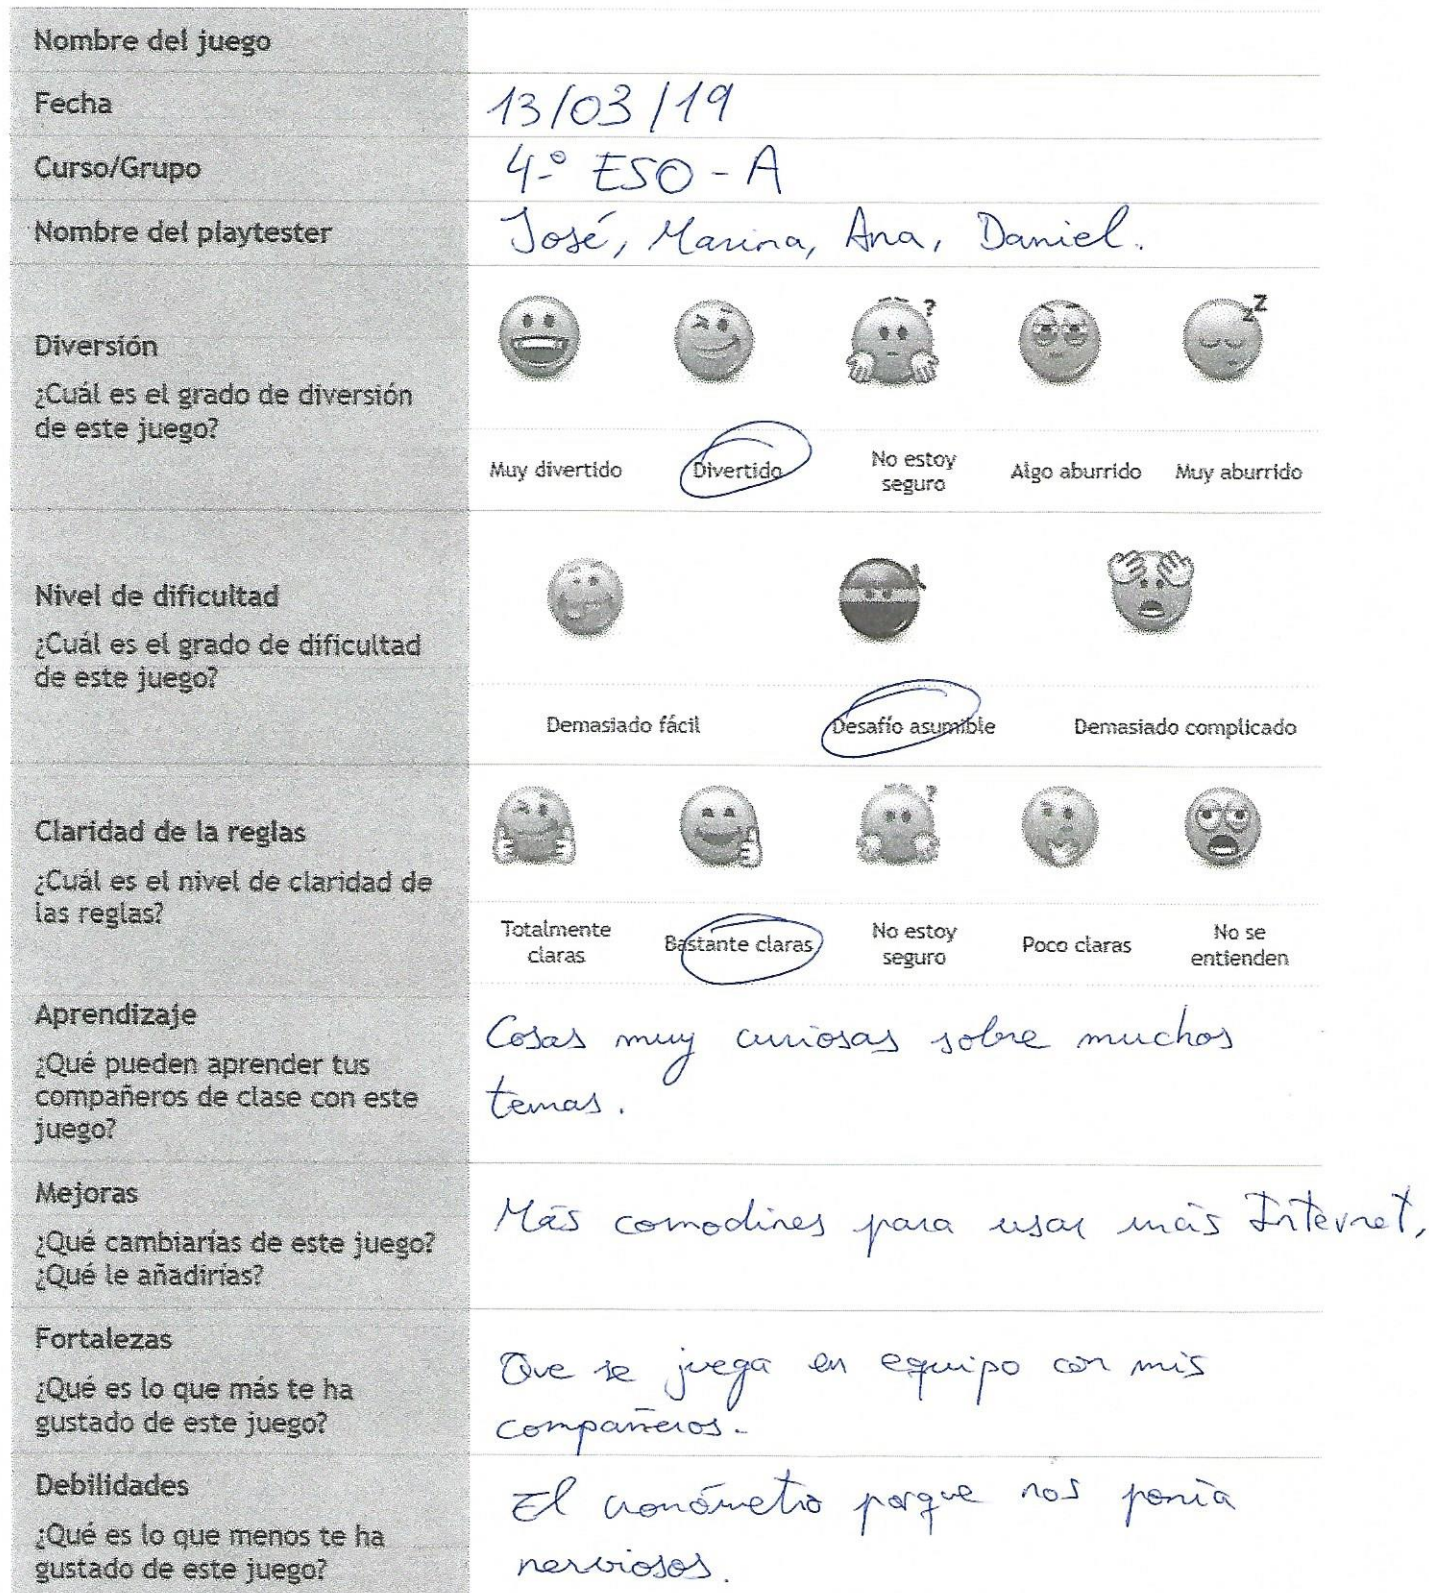 Nombre del juego
Fecha
13/03/19
Curso/Grupo
4º ESO - A
Nombre del playtester
José, Marina, Ana, Daniel.
Diversión
¿Cuál es el grado de diversión
de este juego?
?
zZ
Muy divertido
Divertido
No estoy
seguro
Algo aburrido
Muy aburrido
Nivel de dificultad
¿Cuál es el grado de dificultad
de este juego?
Demasiado fácil
Desafío asumible
Demasiado complicado
Claridad de la reglas
¿Cuál es el nivel de claridad de
las reglas?
?
Totalmente
claras
Bastante claras
No estoy
seguro
Poco claras
No se
entienden
Aprendizaje
¿Qué pueden aprender tus
compañeros de clase con este
juego?
Cosas muy curiosas sobre muchos
temas.
Mejoras
¿Qué cambiarías de este juego?
¿Qué le añadirías?
Más comodines para usar más Internet,
Fortalezas
¿Qué es lo que más te ha
gustado de este juego?
Que se juega en equipo con mis
compañeros.
Debilidades
¿Qué es lo que menos te ha
gustado de este juego?
El cronómetro porque nos ponía
nerviosos.